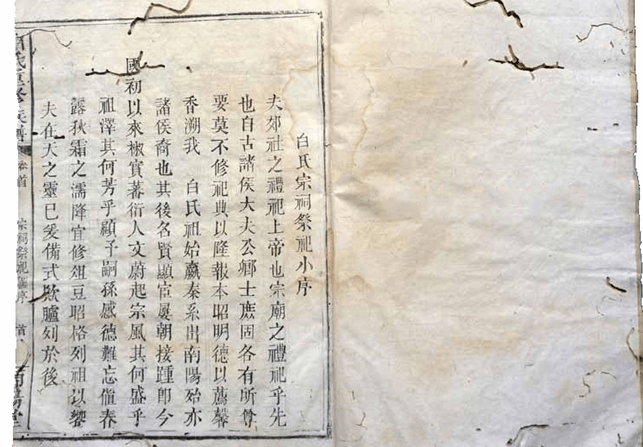 白氏宗祠祭祀小序
夫郊社之禮祀上帝也宗廟之禮祀乎先
也自古諸侯大夫公卿士庶固各有所尊
要莫不修祀典以隆報本昭明德以薦馨
香溯我 白氏祖始嬴秦系出南陽殆亦
諸侯裔也其後名賢顯宦屢朝接踵即今
國初以來椒實蕃衍人文蔚起宗風其何盛乎
祖澤其何芳乎顧予嗣孫感德難忘僾春
露秋霜之濡降宜修俎豆昭格列祖以饗
夫在天之靈已爰備式款臚列於後
卷首
宗祠祭祀 序